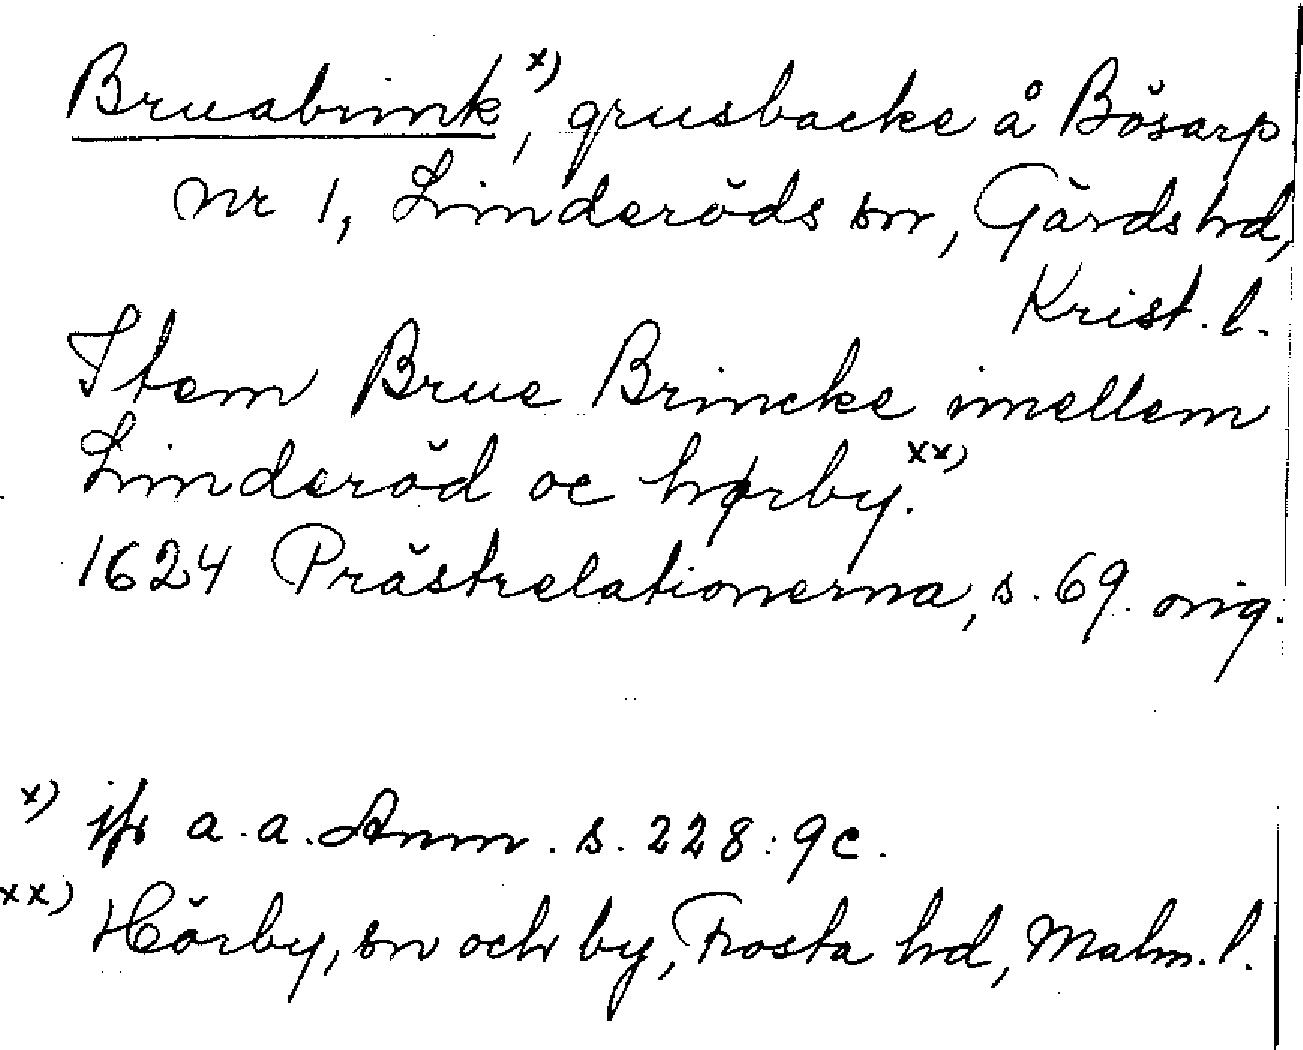 Bruabrink x), grusbacke å Bösarp
nr 1, Linderöds sn, Gärds hd,
Krist. l.
Item Brue Brincke imellem
Linderöd oc hørby. xx)
1624 Prästrelationerna, s. 69. orig.
x) jfr a. a. Anm. s. 228: 9c.
xx) Hörby, sn och by, Frosta hd, Malm. l.